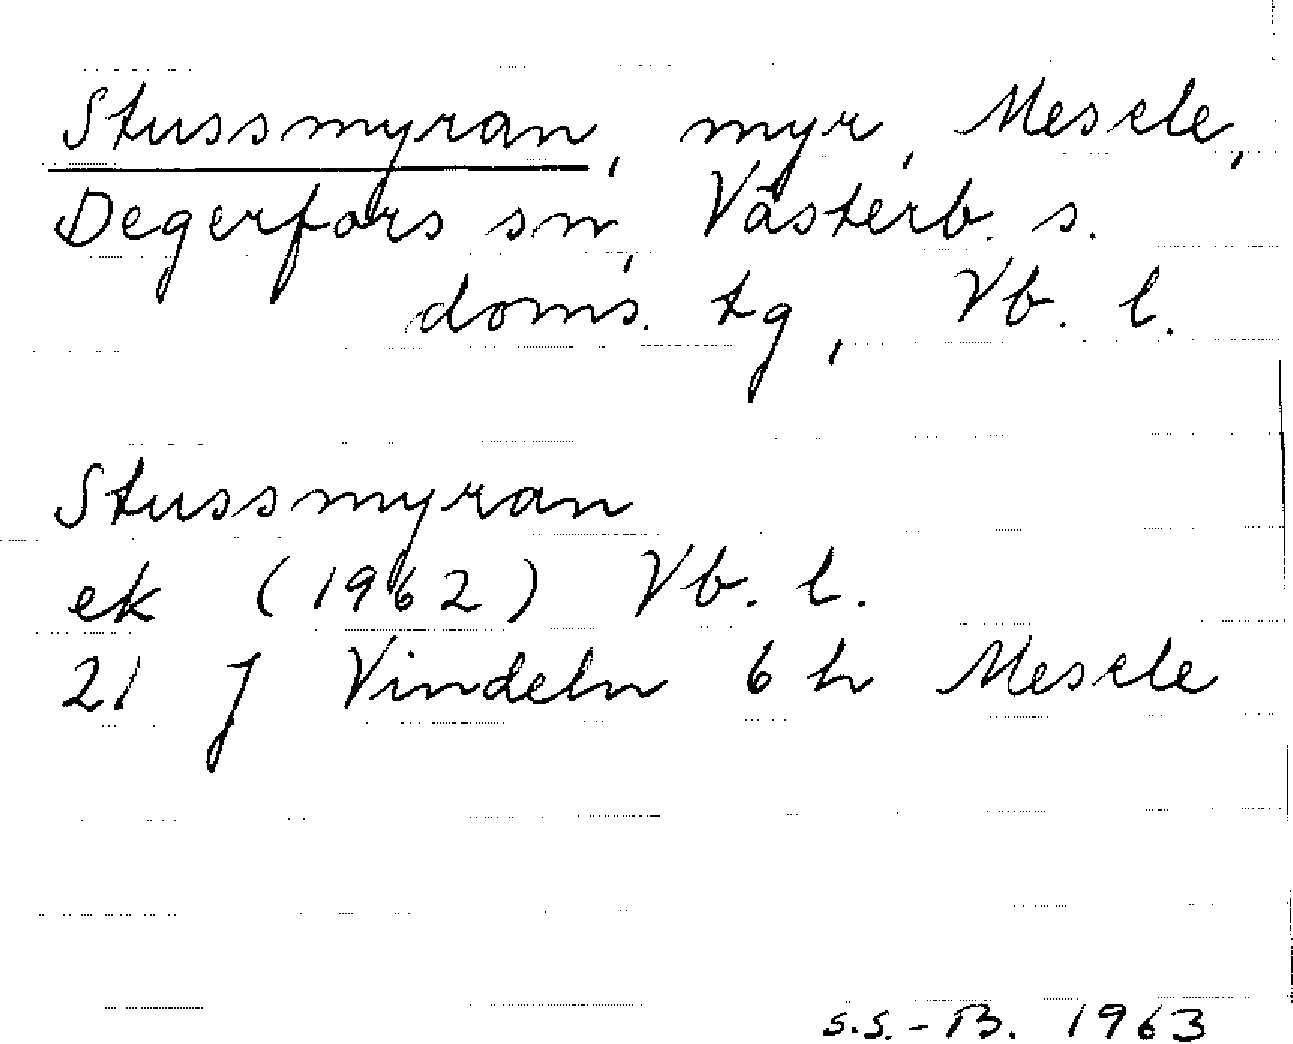 Stussmyran, myr, Mesele,
Degerfors sn, Västerb. s.
doms. tg, Vb. l.
Stussmyran
ek (1962) Vb. l.
21 J Vindeln 6 h Mesele
S.S.-B. 1963